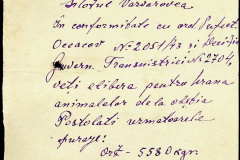 Silozul Vardarovca
În conformitate cu ord. Prefect.
Oceacov No 2051/43 și Decizia
Guvern. Transnistriei No 2704,
veți elibera pentru hrana
animalelor de la obștia
Postolati urmatoarele
furaje:
Orz - 5580 kgr.